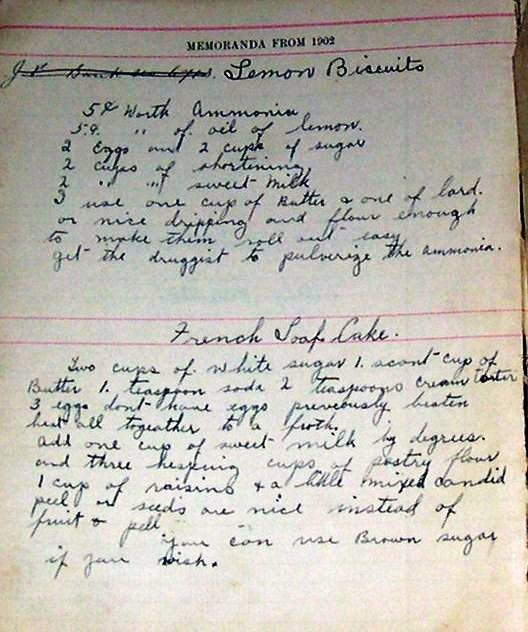 MEMORANDA FROM 1902
Lemon Biscuits
5¢ Worth Ammonia
5¢ " of oil of lemon.
2 Eggs and 2 cups of sugar
2 cups of shortening
2 " " sweet milk
3 use one cup of Butter & one of lard.
or nice dripping and flour enough
to make them roll out easy
get the druggist to pulverize the ammonia.
French Loaf Cake.
Two cups of white sugar 1. scant cup of
Butter 1. teaspoon soda 2 teaspoons cream tarter
3 eggs dont have eggs previously beaten
beat all togeather to a froth.
add one cup of sweet milk by degrees.
and three heaping cups of pastry flour
1 cup of raisins & a little mixed candid
peel or seeds are nice instead of
fruit & pell
You can use Brown sugar
if you wish.